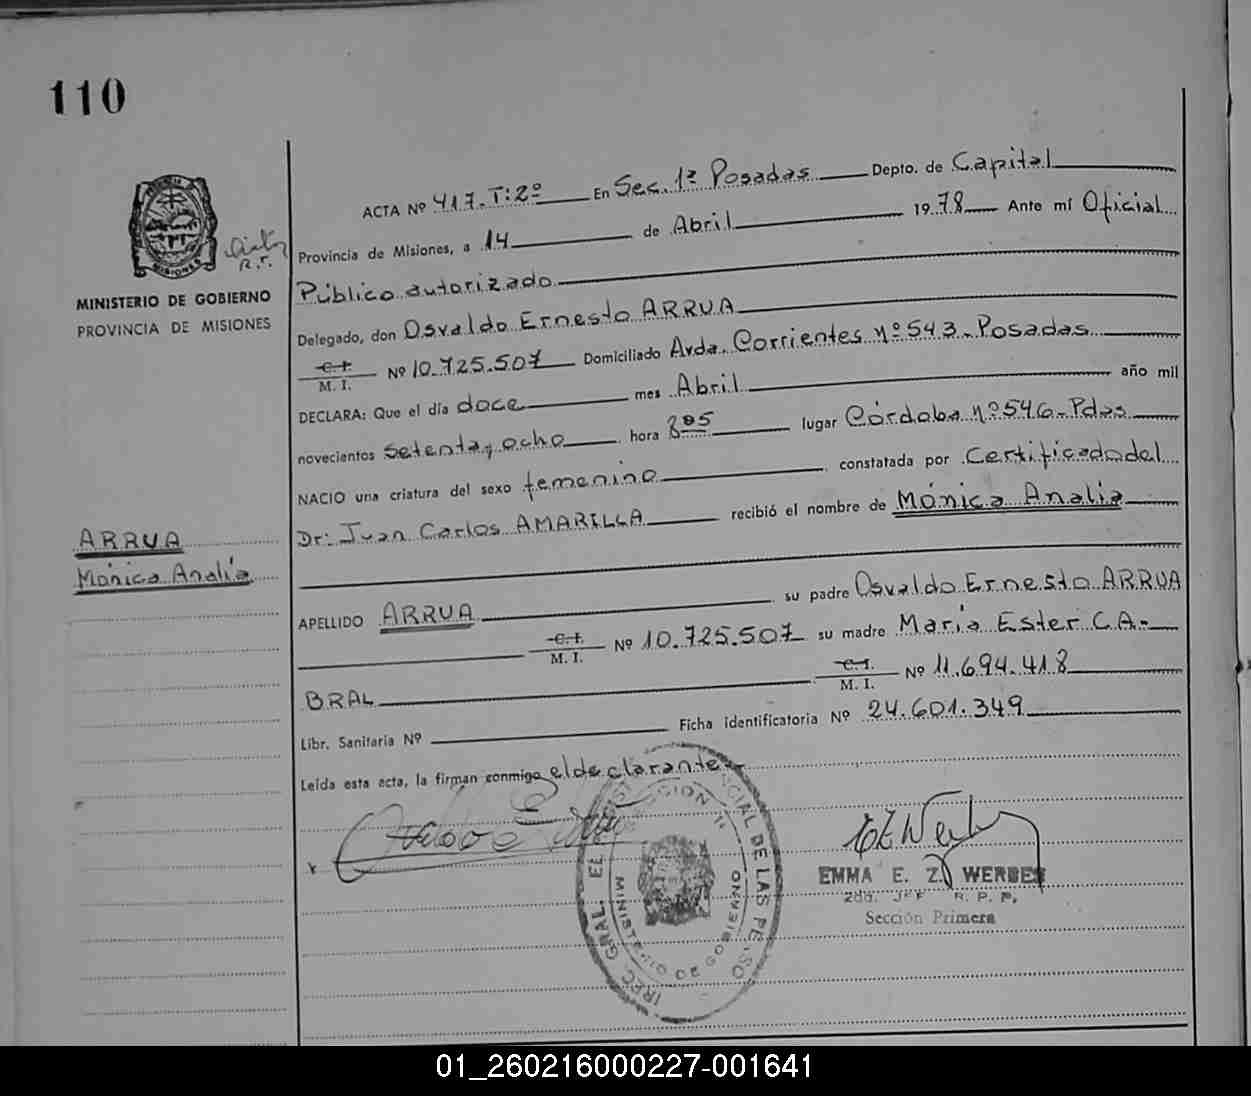 110
ACTA Nº 417-T:2º En Sec. 1ª Posadas Depto. de Capital
Provincia de Misiones, a 14 de Abril 1978 Ante mí Oficial
Público autorizado
Delegado, don Osvaldo Ernesto ARRUA
C. I. / M. I. Nº 10.725.507 Domiciliado Avda. Corrientes nº 543-Posadas
DECLARA: Que el día doce mes Abril año mil
novecientos setenta y ocho hora 8 05 lugar Córdoba nº 546-Pdas
NACIO una criatura del sexo femenino constatada por Certificado del
Dr: Juan Carlos AMARILLA recibió el nombre de Mónica Analia
APELLIDO ARRUA su padre Osvaldo Ernesto ARRUA
C. I. / M. I. Nº 10.725.507 su madre Maria Ester CA-
BRAL C. I. / M. I. Nº 11.694.418
Libr. Sanitaria Nº Ficha identificatoria Nº 24.601.349
Leída esta acta, la firman conmigo el declarante
MINISTERIO DE GOBIERNO
PROVINCIA DE MISIONES
ARRUA
Mónica Analia
MISIONES
MINISTERIO DE GOBIERNO
EMMA E. Z. WERBES
2da. JEF R. P. P.
Sección Primera
01_260216000227-001641